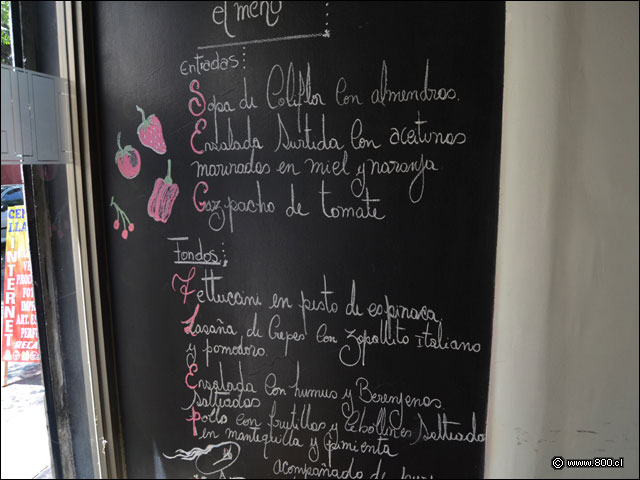 el menú
Entradas:
Sopa de Coliflor con almendras.
Ensalada Surtida con aceitunas
marinadas en miel y naranja.
Gazpacho de tomate
Fondos:
Fettuccini en pesto de espinaca
Lasaña de Crepes con Zapallito italiano
y pomodoro.
Ensalada con humus y Berenjenas
salteadas
pollo con frutillas y cebollines salteados
en mantequilla y pimienta
acompañado de
INTERNET
© www.800.cl